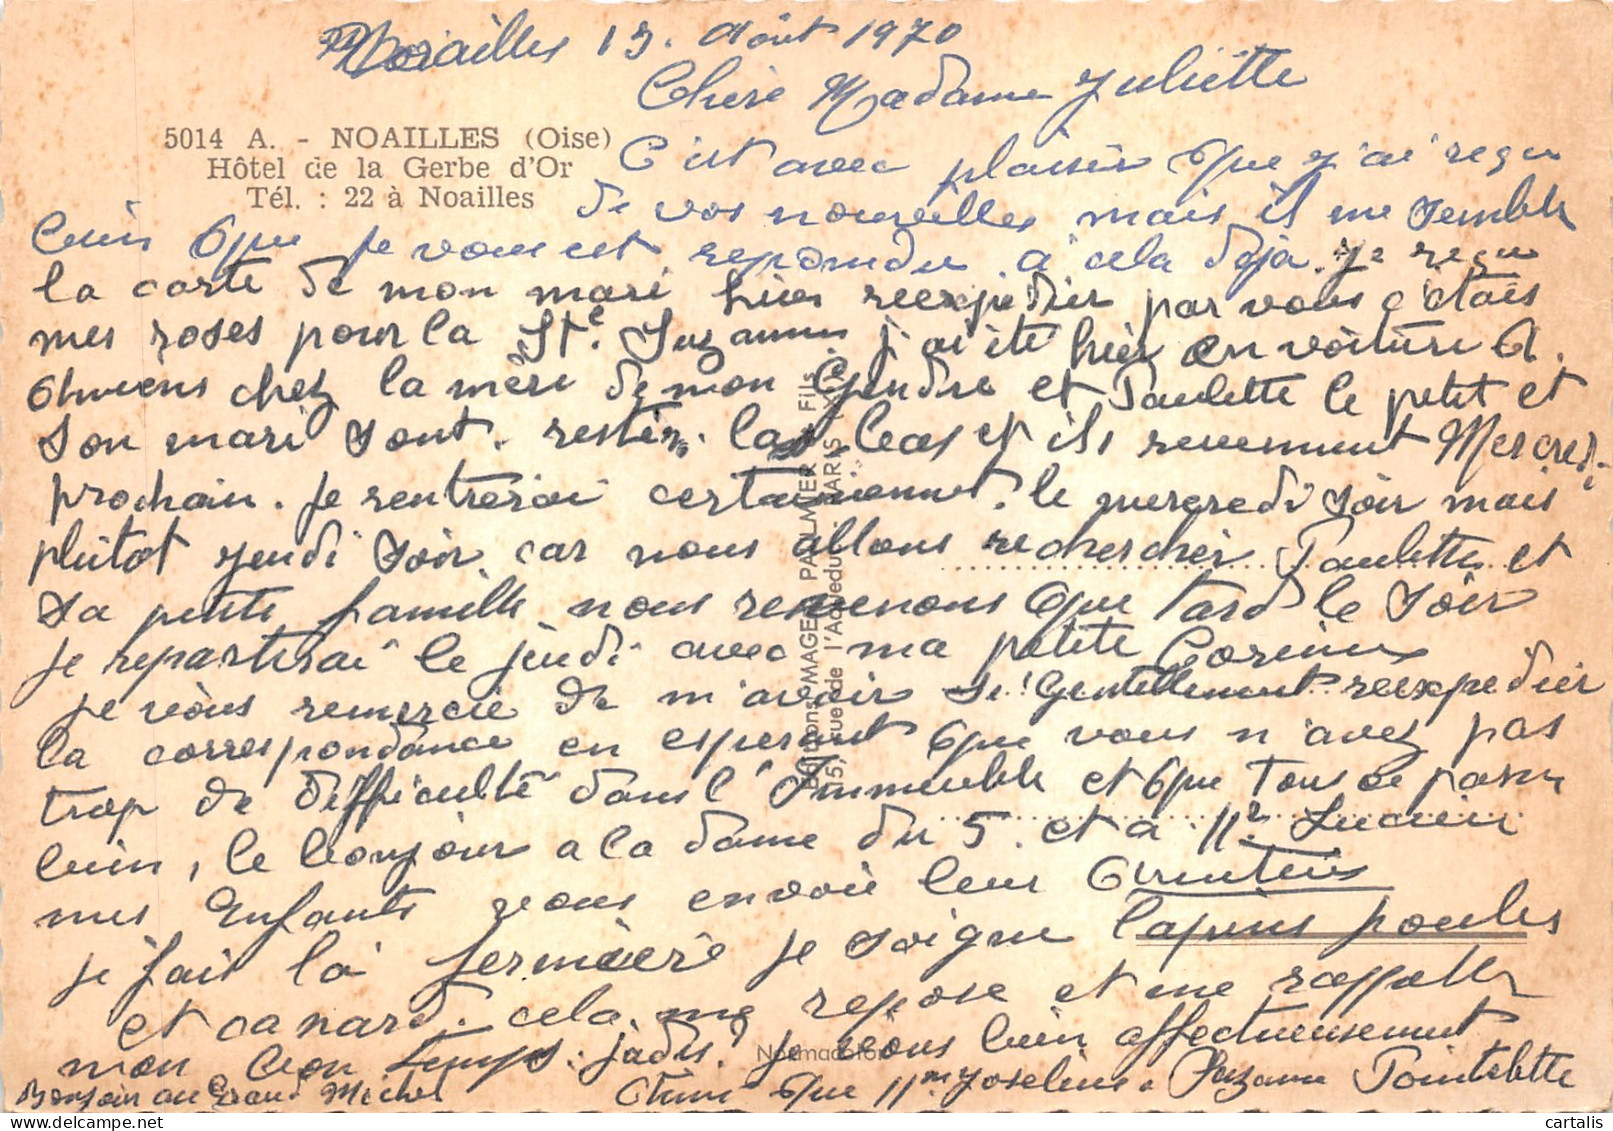 Noailles 13. Août 1970
Chère Madame Juliette
5014 A. - NOAILLES (Oise)
Hôtel de la Gerbe d'Or
Tél. : 22 à Noailles
C'est avec plaisir que j'ai reçu
de vos nouvelles mais il me semble
bien que je vous ait repondu a cela deja. je reçu
la carte de mon mari hier reexpedier par vous c'étais
mes roses pour la Ste. Suzanne j'ai été hier en voiture a
Amiens chez la mère de mon Gendre et Paulette le petit et
son mari sont. rester. la bas et ils reviennent Mercredi
prochain. je rentrerai certainement. le mercredi soir mais
plutot jeudi soir. car nous allons rechercher Paulette et
sa petite famille nous revenons que tard le soir
je repartirai le jeudi avec ma petite Corinne
je vous remercie de m'avoir si gentillement reexpedier
la correspondance en esperant que vous n'avez pas
trop de difficulté dans l'Immeuble et que tous se passe
bien, le bonjour a la dame du 5. et a Mr Lucien
mes Enfants vous envoie leur
je fait la fermière je soigne lapins poules
et canard. cela me repose et me rappelle
mon bon temps. jadis. je vous bien affectueusement
Bonjour au Grand Michel
que Mme Joseline Suzanne Pointelette
Editions MAGE, PALMIER & Fils
5, rue de l'Aqueduc. PARIS (Xe)
Normacolor